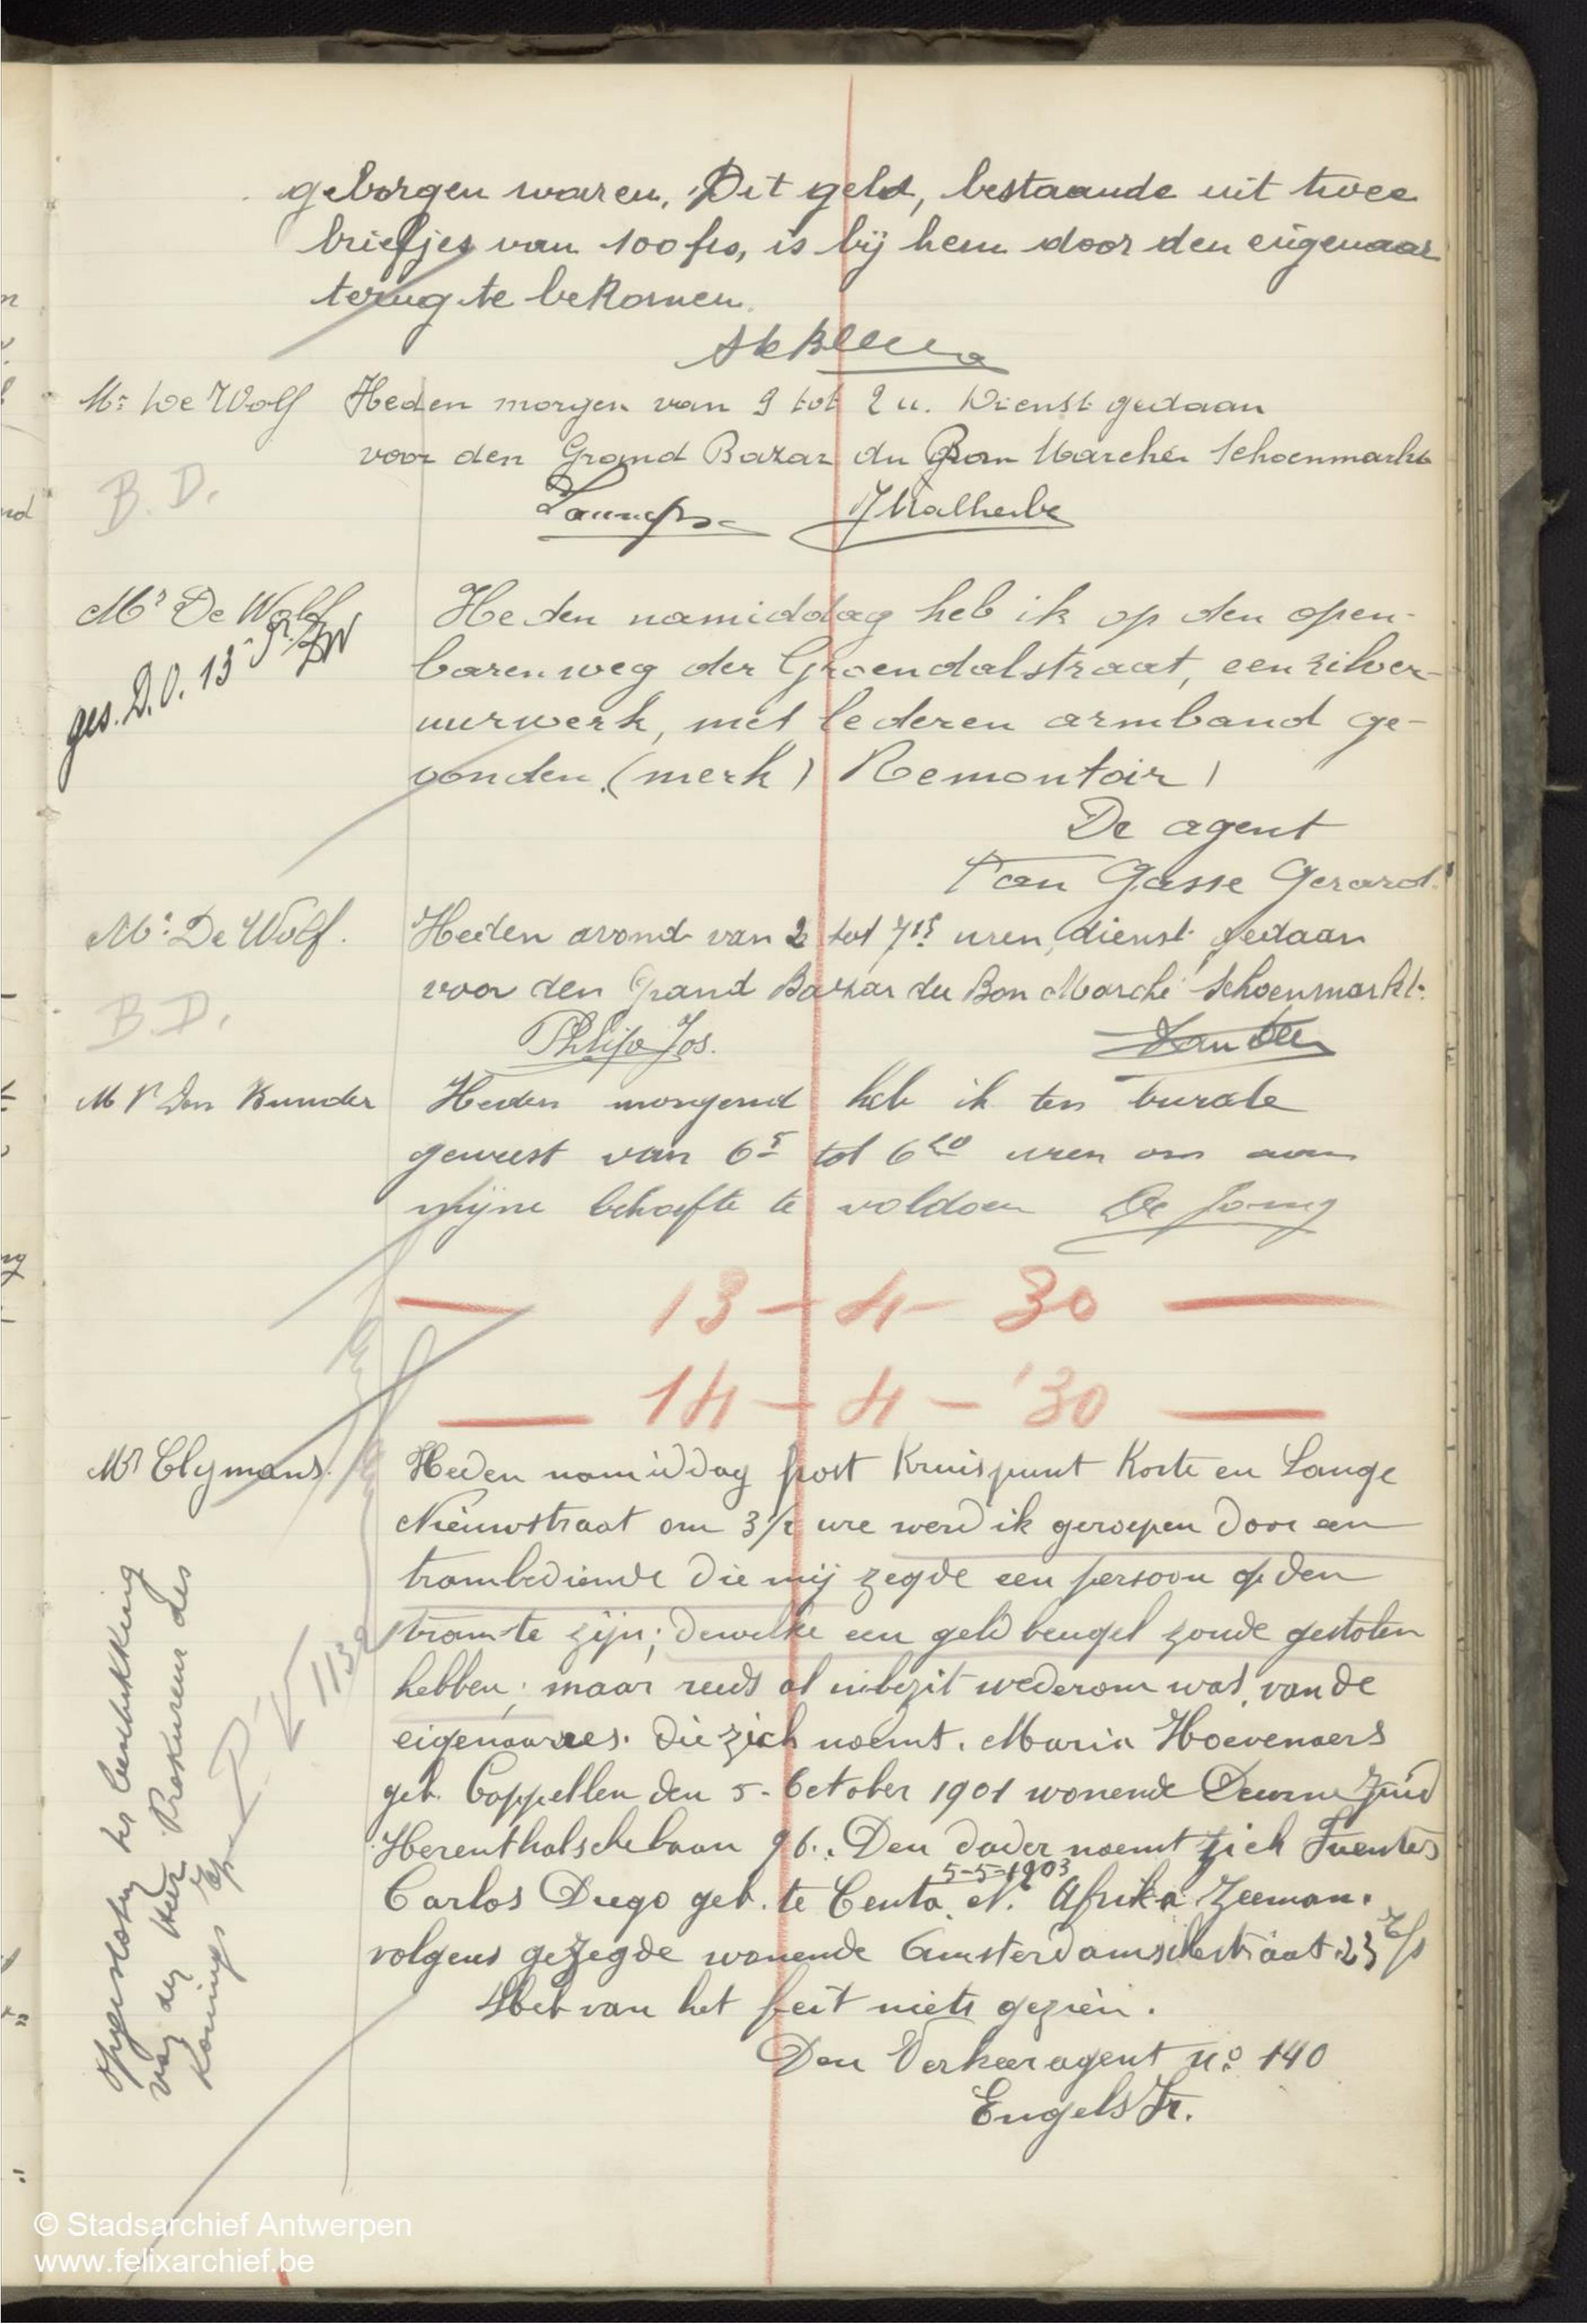 geborgen waren, Dit geld, bestaande uit twee
briefjes van 100 frs, is bij hem door den eigenaar
terug te bekomen.
Mr De Wolf Heden morgen van 9 tot 2 u. Dienst gedaan
voor den Grand Bazar du Bon Marché Schoenmarkt
B. D.
J Malherbe
Mr De Wolf
ges. D.O. 13
Heden namiddag heb ik op den open-
baren weg der Groendalstraat, een zilver
uurwerk, met lederen armband ge-
vonden. (merk) Remontoir)
De agent
Van Gasse Gerard.
Mr De Wolf. Heden avond van 2 tot 7 15 uren, dienst gedaan
voor den Grand Bazar du Bon Marché Schoenmarkt.
B.D.
Philips Jos.
Mr Den Bunder Heden morgend heb ik ten burele
geweest van 6 5 tot 6 20 uren om aan
mijne behoefte te voldoen De Jong
— 13 - 4 - 30 —
— 14 - 4 - '30 —
Mr Clymans. Heden namiddag post Kruispunt Korte en Lange
Nieuwstraat om 3 1/2 ure werd ik geroepen door een
trambediende die mij zegde een persoon op den
tram te zijn; dewelke een geldbeugel zoude gestolen
hebben; maar reeds al in bezit wederom was, van de
eigenaares. Die zich noemt. Maria Hoevenaers
geb. Cappellen den 5 - October 1901 wonende Deurne Zuid
Herenthalschebaan 96. Den dader noemt zich Fuentes
5-5-1903
Carlos Diego geb. te Ceuta. N. Afrika Zeeman.
volgens gezegde wonende Amsterdamschestraat 23
Heb van het feit niets gezien.
Den Verkeeragent no 140
Engels Fr.
Opgesloten ter beschikking
van den Heer Prokureur des
Konings
1132
© Stadsarchief Antwerpen
www.felixarchief.be